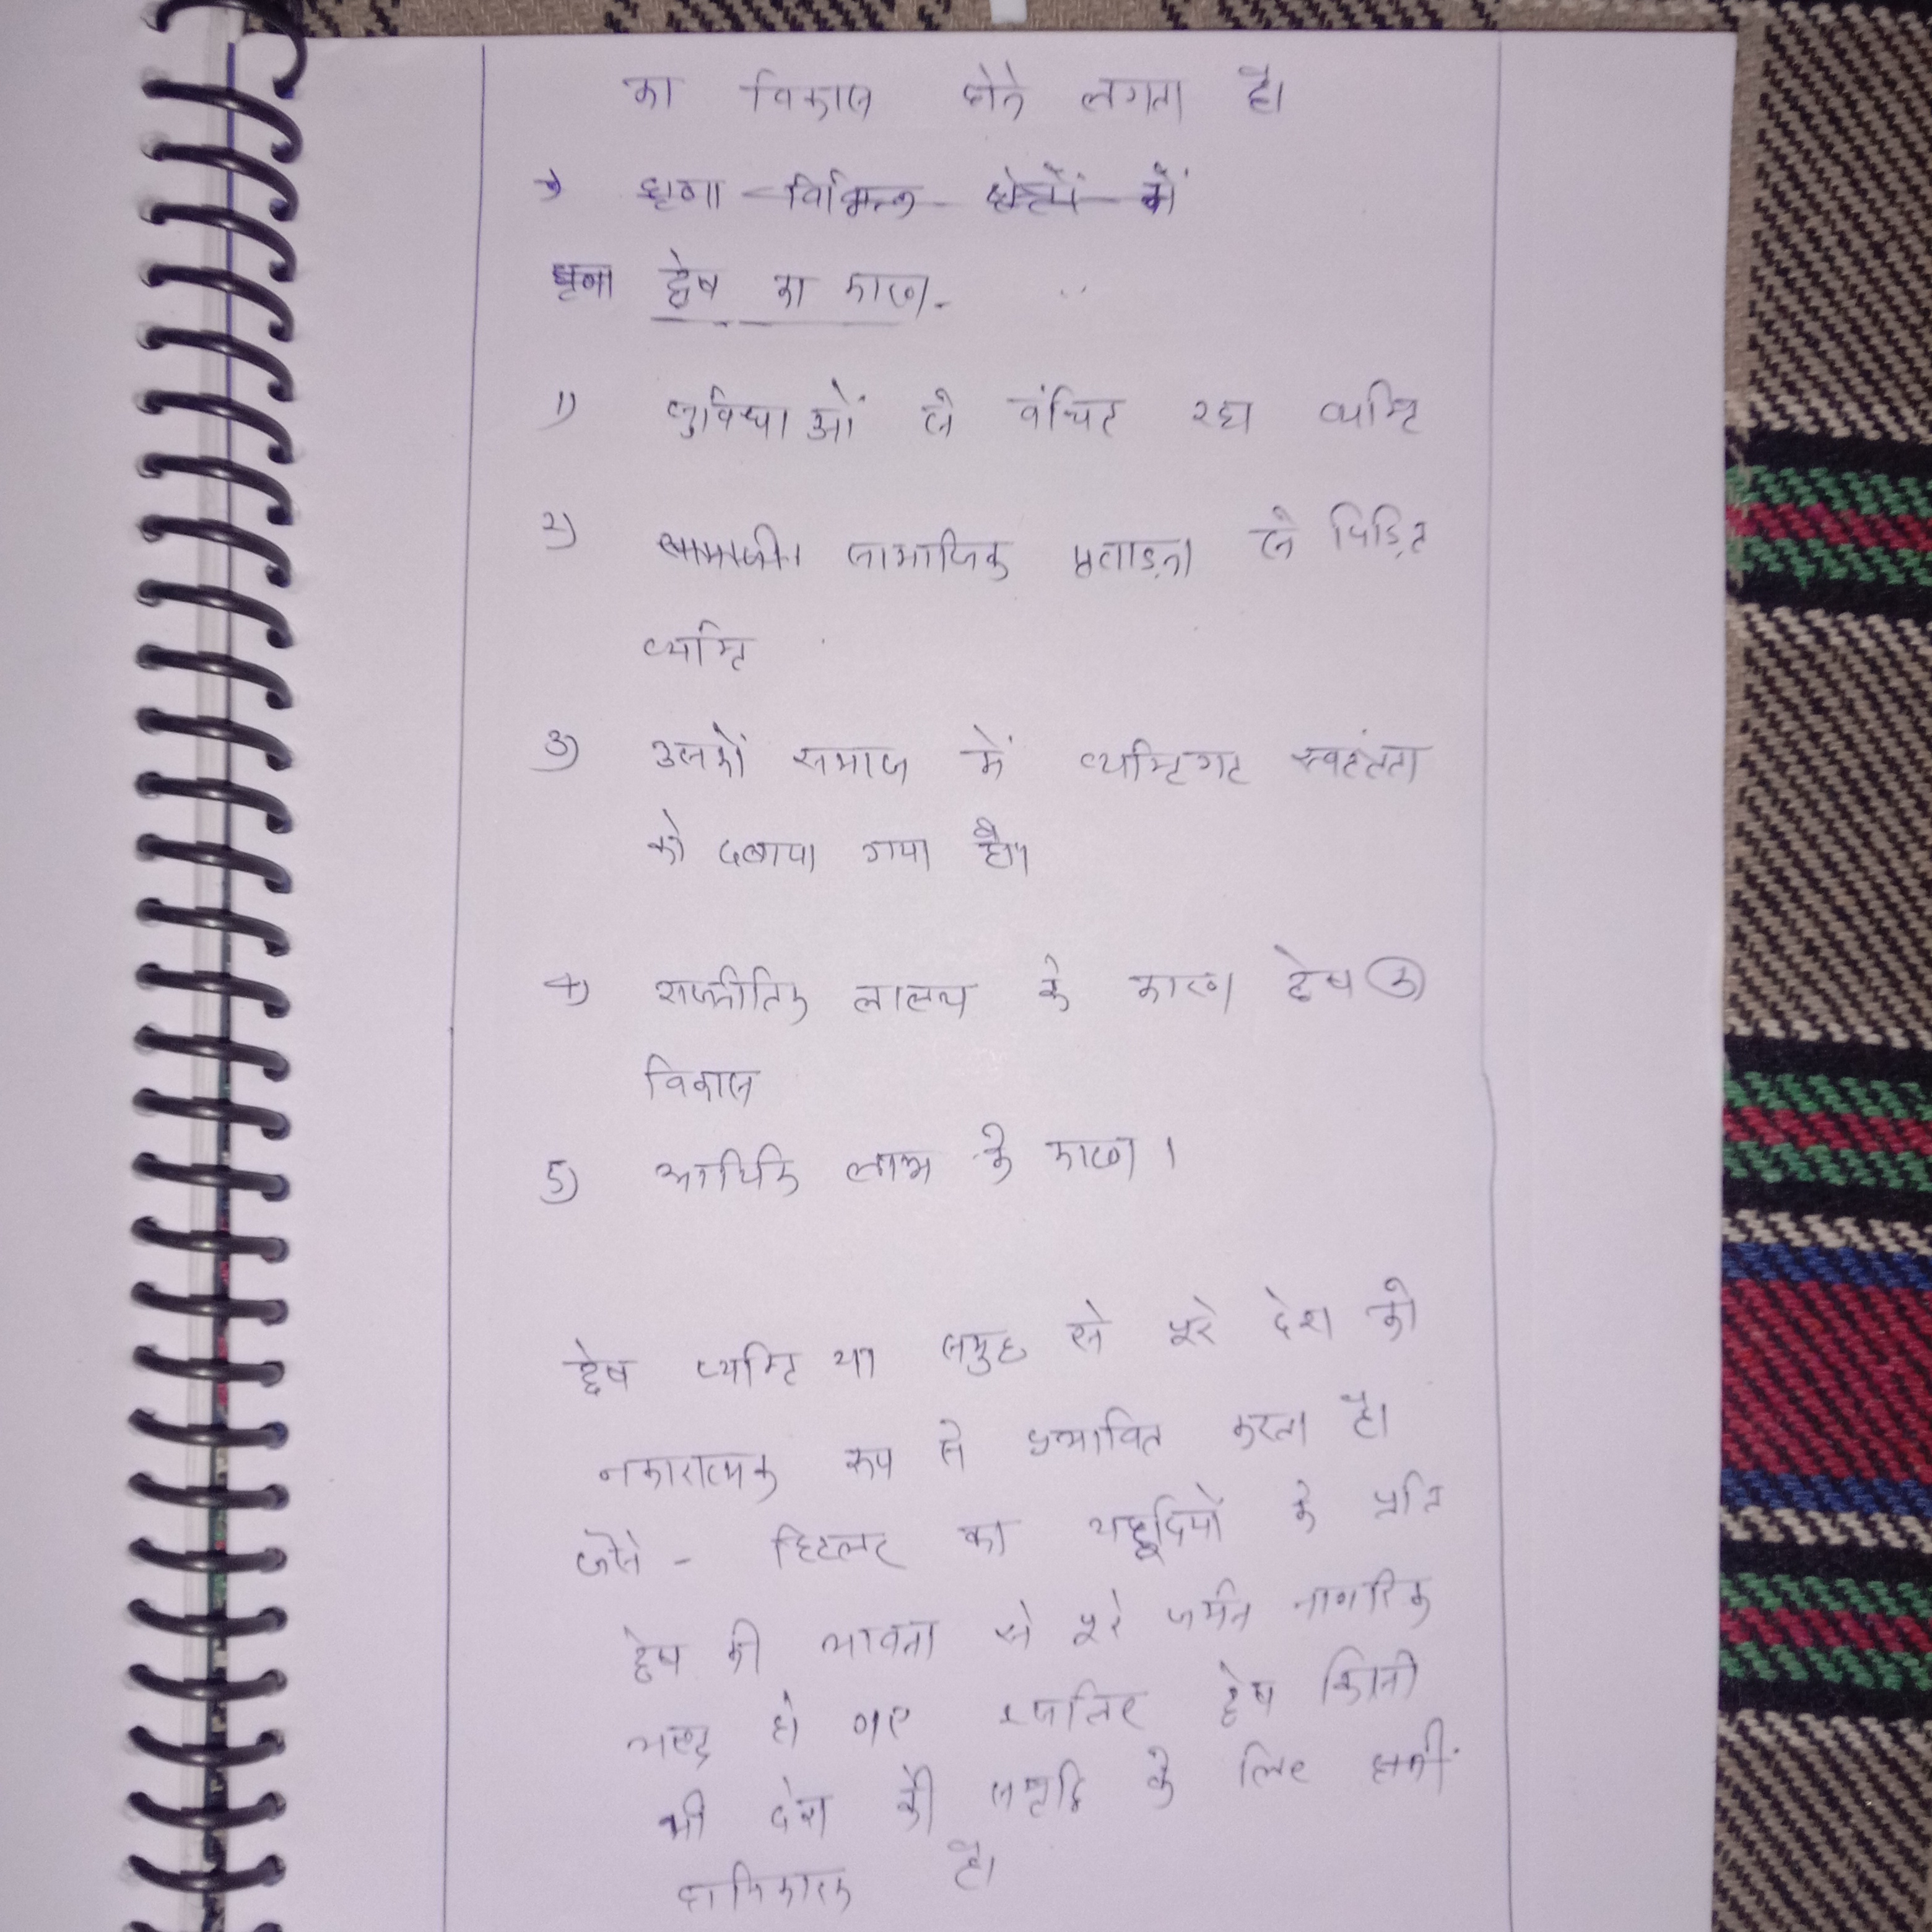 का विकास होने लगता है।
→ घृणा विभिन्न क्षेत्रों में
घृणा द्वेष का कारण-
1) सुविधाओं से वंचित रहा व्यक्ति
2) सामाजिक प्रताड़ना से पिड़ित
व्यक्ति
3) उसको समाज में व्यक्तिगत स्वतंत्रता
को दबाया गया हो।
4) राजनीतिक लालच के कारण द्वेष का
विकास
5) आर्थिक लाभ के कारण।
द्वेष व्यक्ति या समुह से पूरे देश को
नकारात्मक रूप से प्रभावित करता है।
जैसे - हिटलर का यहूदियों के प्रति
द्वेष की भावना से पूरे जर्मन नागरिक
भ्रष्ट हो गए इसलिए द्वेष किसी
भी देश की समृद्धि के लिए
हानिकारक है।